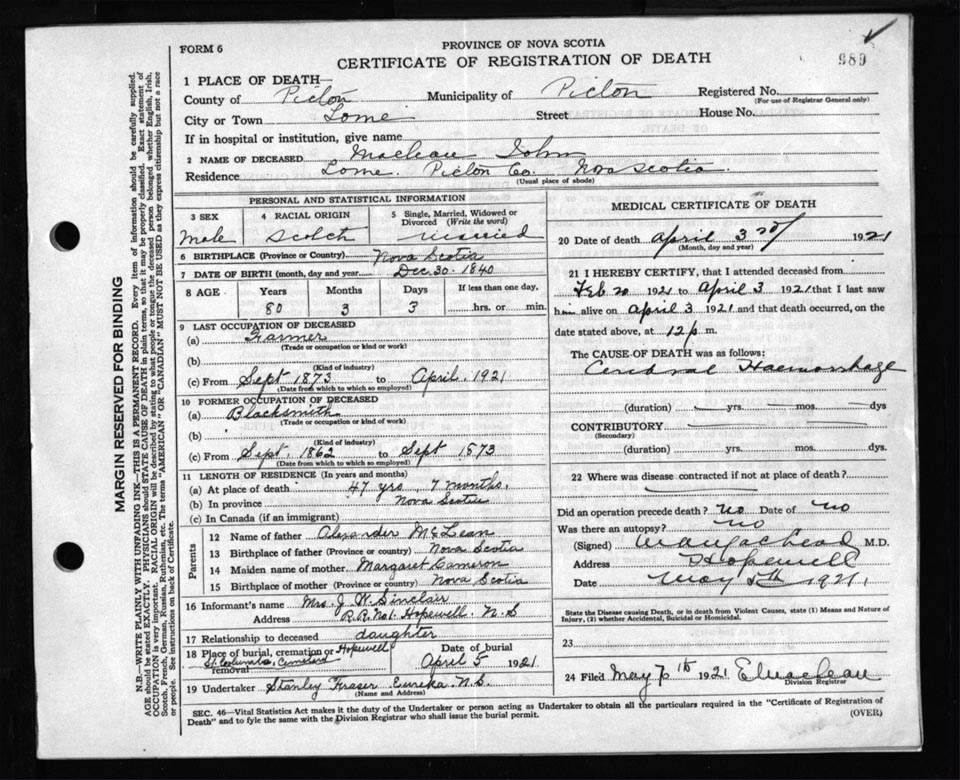 FORM 6
PROVINCE OF NOVA SCOTIA
CERTIFICATE OF REGISTRATION OF DEATH
989
1 PLACE OF DEATH—
County of Pictou Municipality of Pictou Registered No.
(For use of Registrar General only)
City or Town Lorne Street House No.
If in hospital or institution, give name
2 NAME OF DECEASED MacLean John
Residence Lorne. Pictou Co. Nova Scotia
(Usual place of abode)
PERSONAL AND STATISTICAL INFORMATION
3 SEX 4 RACIAL ORIGIN 5 Single, Married, Widowed or Divorced (Write the word)
Male Scotch Married
6 BIRTHPLACE (Province or Country) Nova Scotia
7 DATE OF BIRTH (month, day and year) Dec. 30. 1840
8 AGE Years Months Days If less than one day,
80 3 3 hrs. or min.
9 LAST OCCUPATION OF DECEASED
(a) Farmer
(Trade or occupation or kind of work)
(b)
(Kind of industry)
(c) From Sept 1873 to April 1921
(Date from which to which so employed)
10 FORMER OCCUPATION OF DECEASED
(a) Blacksmith
(Trade or occupation or kind of work)
(b)
(Kind of industry)
(c) From Sept. 1862 to Sept 1873
(Date from which to which so employed)
11 LENGTH OF RESIDENCE (In years and months)
(a) At place of death 47 yrs 7 months.
(b) In province Nova Scotia
(c) In Canada (if an immigrant)
Parents
12 Name of father Alexander McLean
13 Birthplace of father (Province or country) Nova Scotia
14 Maiden name of mother Margaret Cameron
15 Birthplace of mother (Province or country) Nova Scotia
16 Informant's name Mrs. J. W. Sinclair
Address R.R. No1. Hopewell N.S
17 Relationship to deceased daughter
18 Place of burial, cremation or removal Hopewell Cemetery Date of burial
April 5 1921
19 Undertaker Stanley Fraser Eureka N.S.
(Name and Address)
MEDICAL CERTIFICATE OF DEATH
20 Date of death April 3rd 1921
(Month, day and year)
21 I HEREBY CERTIFY, that I attended deceased from
Feb 20 1921 to April 3 1921 that I last saw
him alive on April 3 1921 and that death occurred, on the
date stated above, at 12 p m.
The CAUSE OF DEATH was as follows:
Cerebral Haemorrhage
(duration) yrs. mos. dys
CONTRIBUTORY
(Secondary)
(duration) yrs. mos. dys.
22 Where was disease contracted if not at place of death?
Did an operation precede death? no Date of no
Was there an autopsy? no
(Signed) M.D.
Address Hopewell
Date May 5th 1921
State the Disease causing Death, or in death from Violent Causes, state (1) Means and Nature of
Injury, (2) whether Accidental, Suicidal or Homicidal.
23
24 Filed May 7th 1921 EMacLean
Division Registrar
SEC. 46—Vital Statistics Act makes it the duty of the Undertaker or person acting as Undertaker to obtain all the particulars required in the "Certificate of Registration of
Death" and to fyle the same with the Division Registrar who shall issue the burial permit.
(OVER)
MARGIN RESERVED FOR BINDING
N.B.—WRITE PLAINLY WITH UNFADING INK—THIS IS A PERMANENT RECORD. Every item of information should be carefully supplied.
AGE should be stated EXACTLY. PHYSICIANS should STATE CAUSE OF DEATH in plain terms, so that it may be properly classified. Exact statement of
OCCUPATION is very important. RACIAL ORIGIN will be described by stating to what people or tongue the deceased person belonged whether English, Irish,
Scotch, French, German, Russian, Ruthenian, etc. The terms "AMERICAN" OR "CANADIAN" MUST NOT BE USED as they express citizenship but not a race
or people. See instructions on back of Certificate.